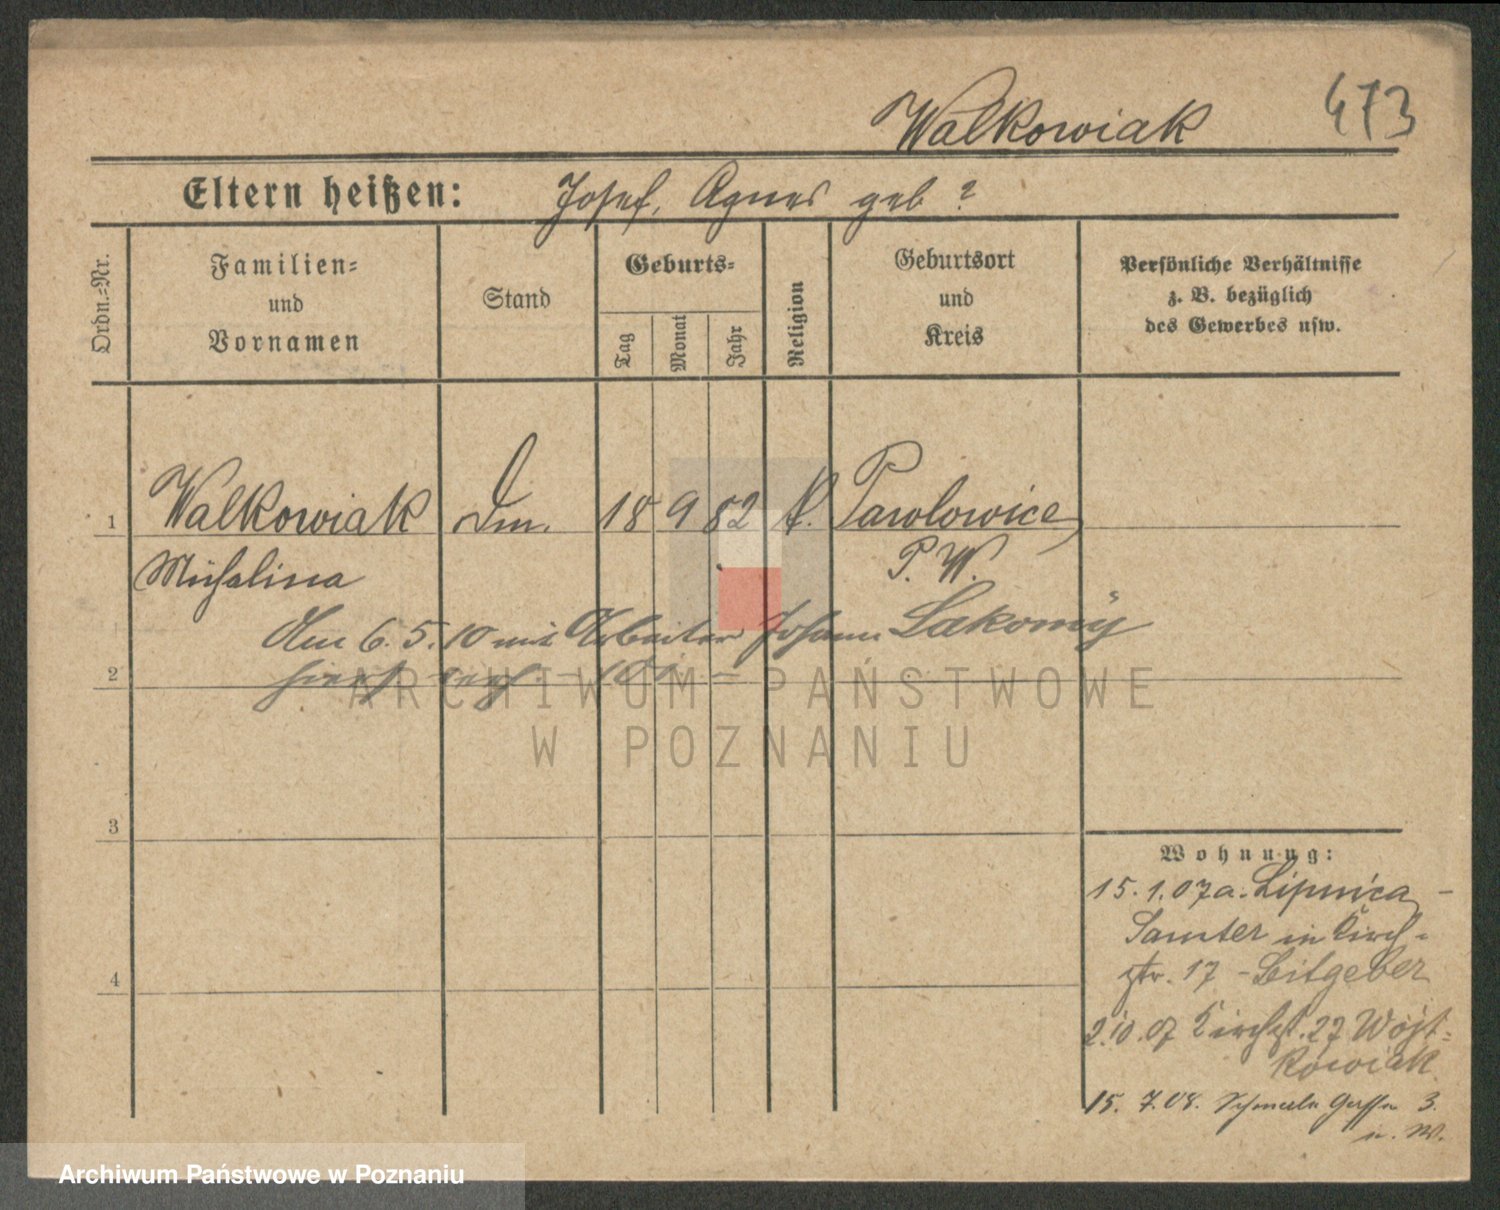 Walkowiak
473
Eltern heißen: Josef, Agnes geb ?
Ordn.-Nr.
Familien-
und
Vornamen
Stand
Geburts-
Tag
Monat
Jahr
Religion
Geburtsort
und
Kreis
Persönliche Verhältnisse
z. B. bezüglich
des Gewerbes usw.
1 Walkowiak 18 9 82 k. Pawlowice
Michalina P. W.
Am 6. 5. 10 mit Arbeiter Johann Lakomy
2 hierf verh.
3
4
Wohnung:
15. 1. 07 a. Lipnica -
Samter in Kirch-
str. 17 - Bitgeber
2. 10. 07 Kirchst. 27 Wojt-
kowiak
15. 7. 08. Gasse 3.
ARCHIWUM PAŃSTWOWE
W POZNANIU
Archiwum Państwowe w Poznaniu